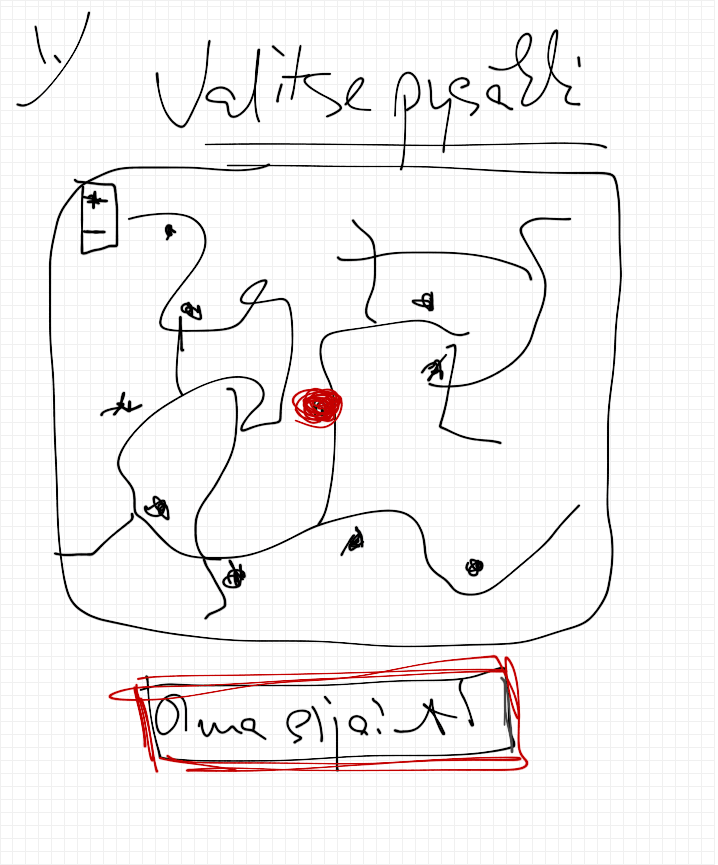 Valitse pysäkki
+
-
Oma sijainti